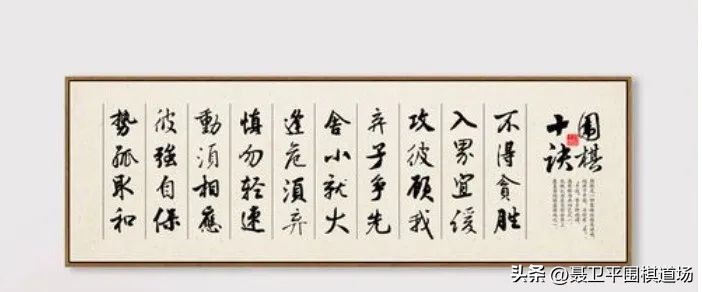 围棋
十诀
不得貪胜
入界宜缓
攻彼顾我
弃子争先
舍小就大
逢危須弃
慎勿轻速
動須相應
彼強自保
勢孤取和
头条 @聂卫平围棋道场